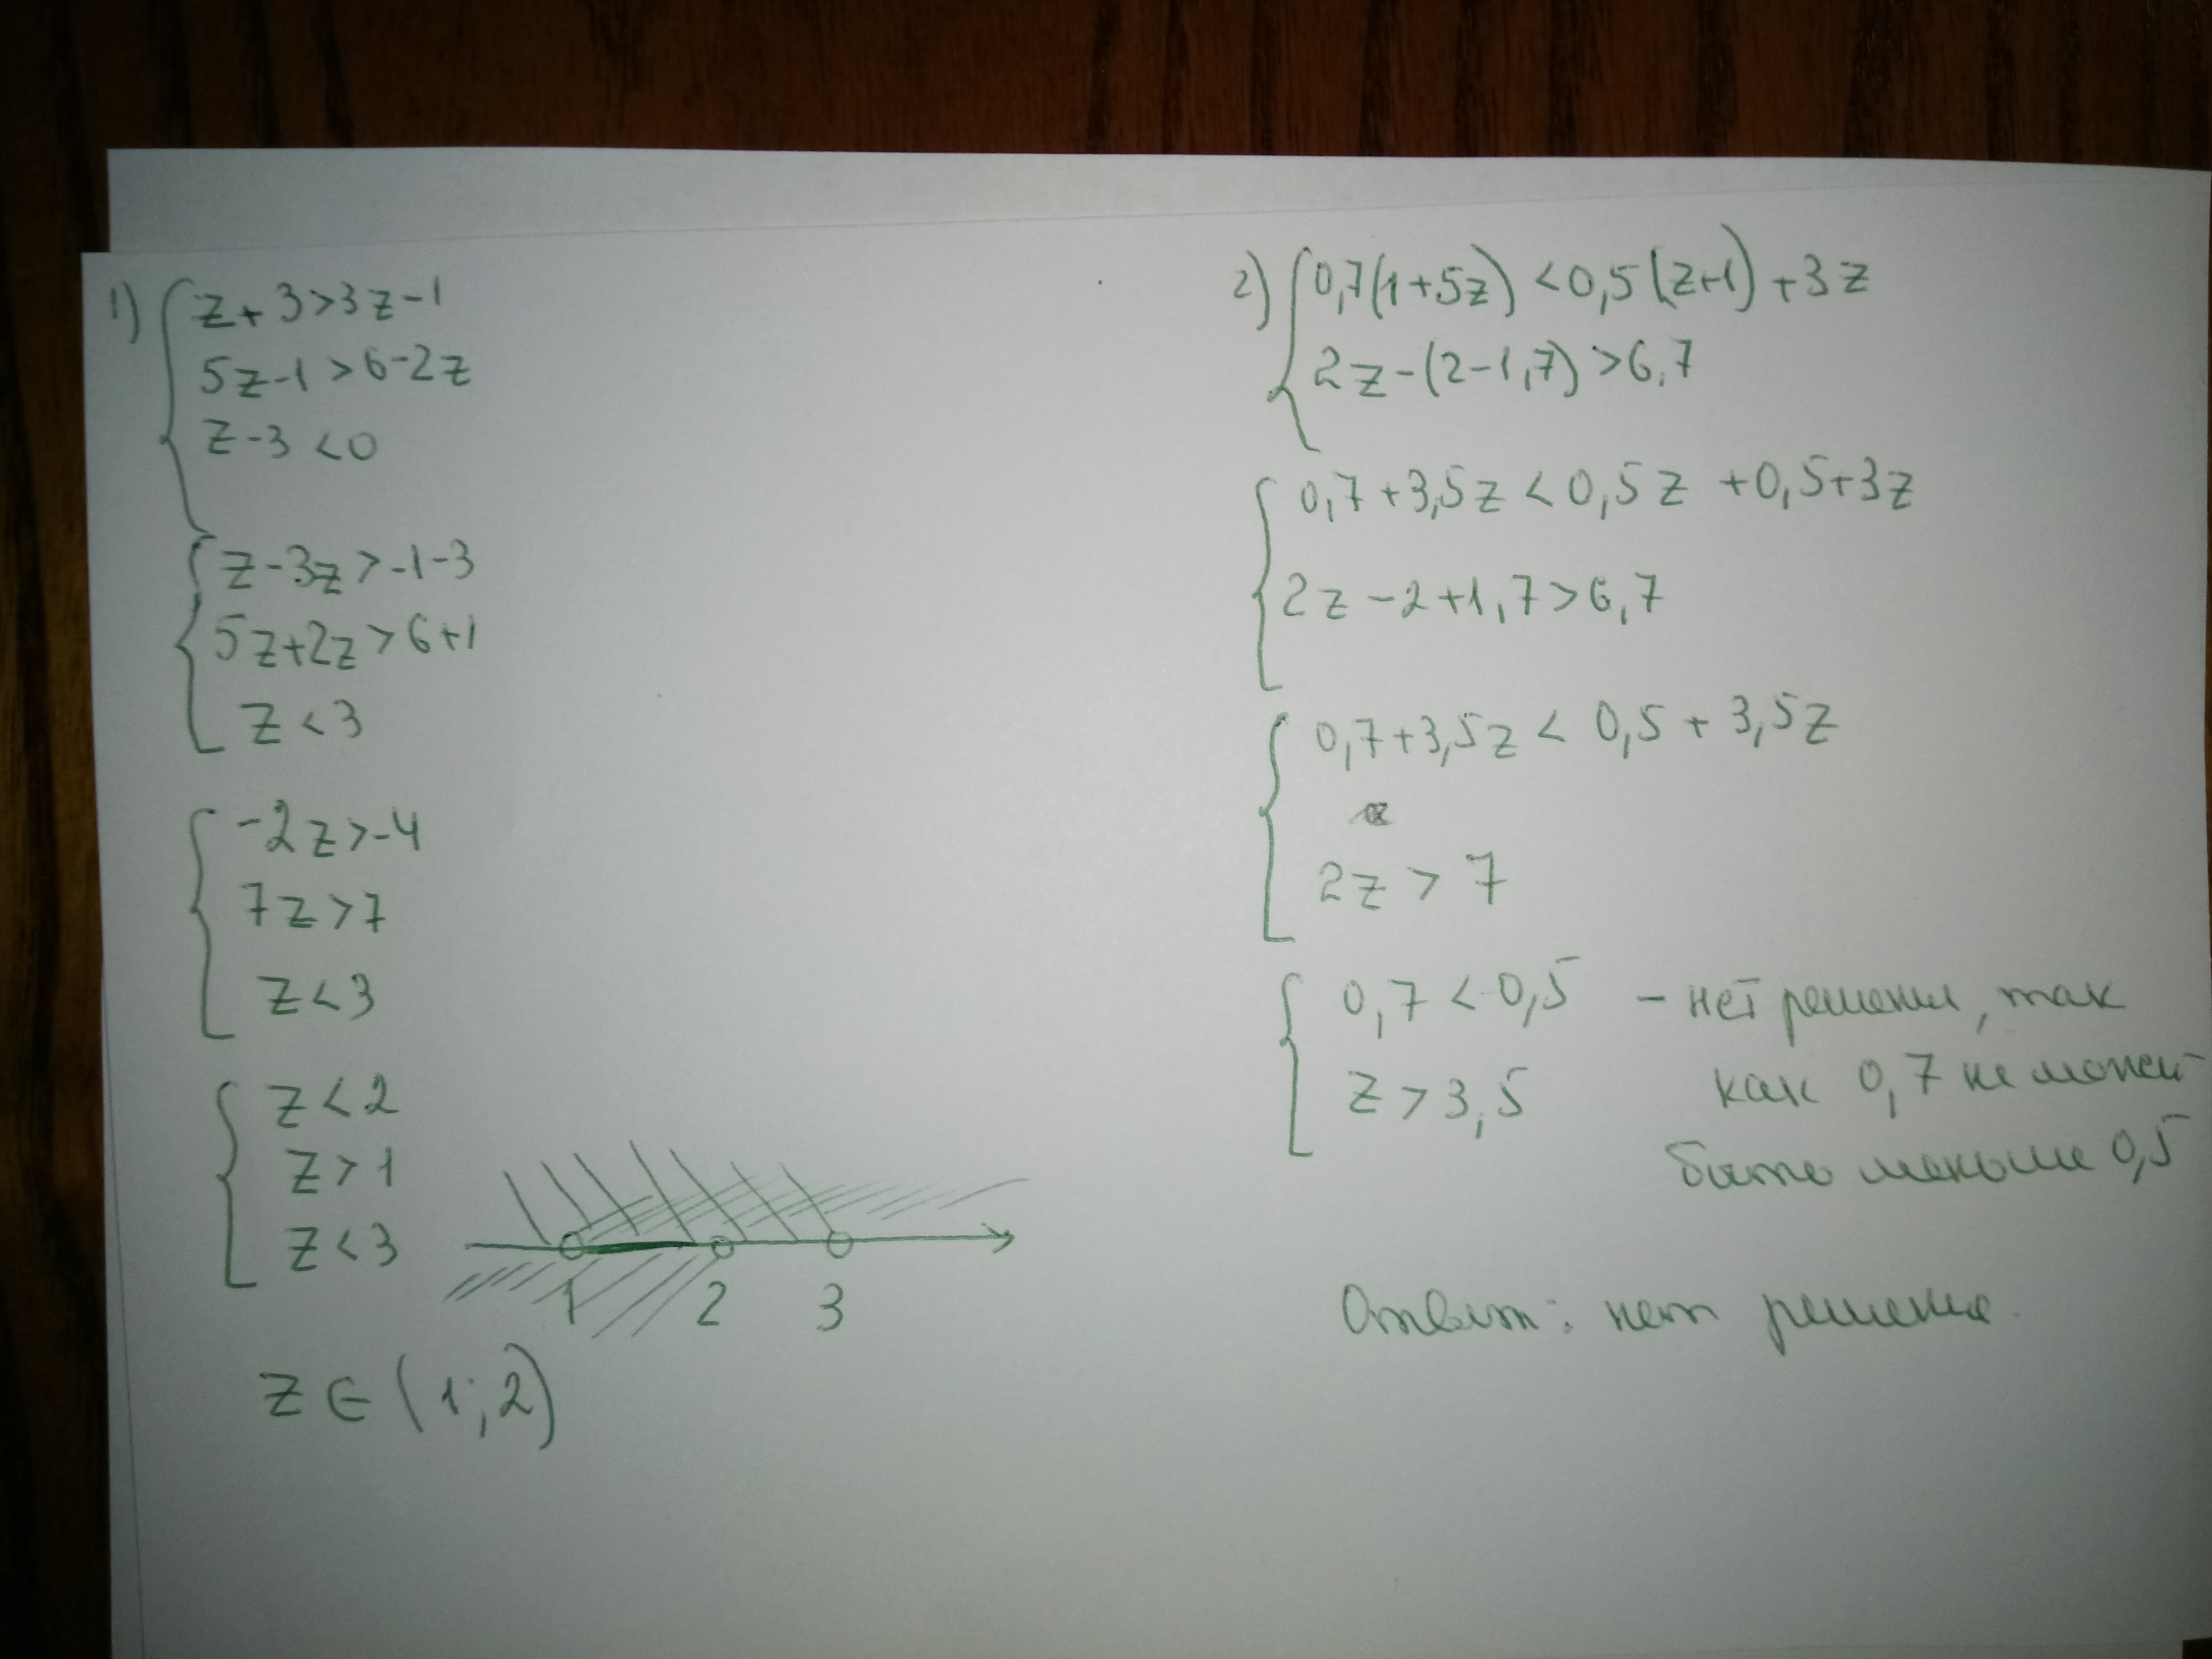 1) z+3>3z-1
5z-1>6-2z
z-3<0
z-3z>-1-3
5z+2z>6+1
z<3
-2z>-4
7z>7
z<3
z<2
z>1
z<3
1 2 3
z∈(1;2)
2) 0,7(1+5z)<0,5(z+1)+3z
2z-(2-1,7)>6,7
0,7+3,5z<0,5z+0,5+3z
2z-2+1,7>6,7
0,7+3,5z<0,5+3,5z
2z>7
0,7<0,5 - нет решения, так
z>3,5 как 0,7 не может
быть меньше 0,5
Ответ: нет решения.